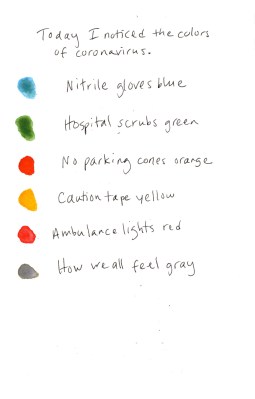 Today I noticed the colors
of coronavirus.
Nitrile gloves blue
Hospital scrubs green
No parking cones orange
Caution tape yellow
Ambulance lights red
How we all feel gray